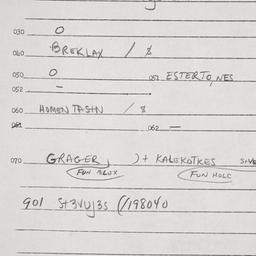 030 O
060 BREKLAX / $
050 O 051 ESTERTO, NES
052 –
060 HOMEN TASTN / $
061 062 —
070 GRAGER, ) + KALEKOTKES
FUN HOLC
901 St3vyj3s (/198040